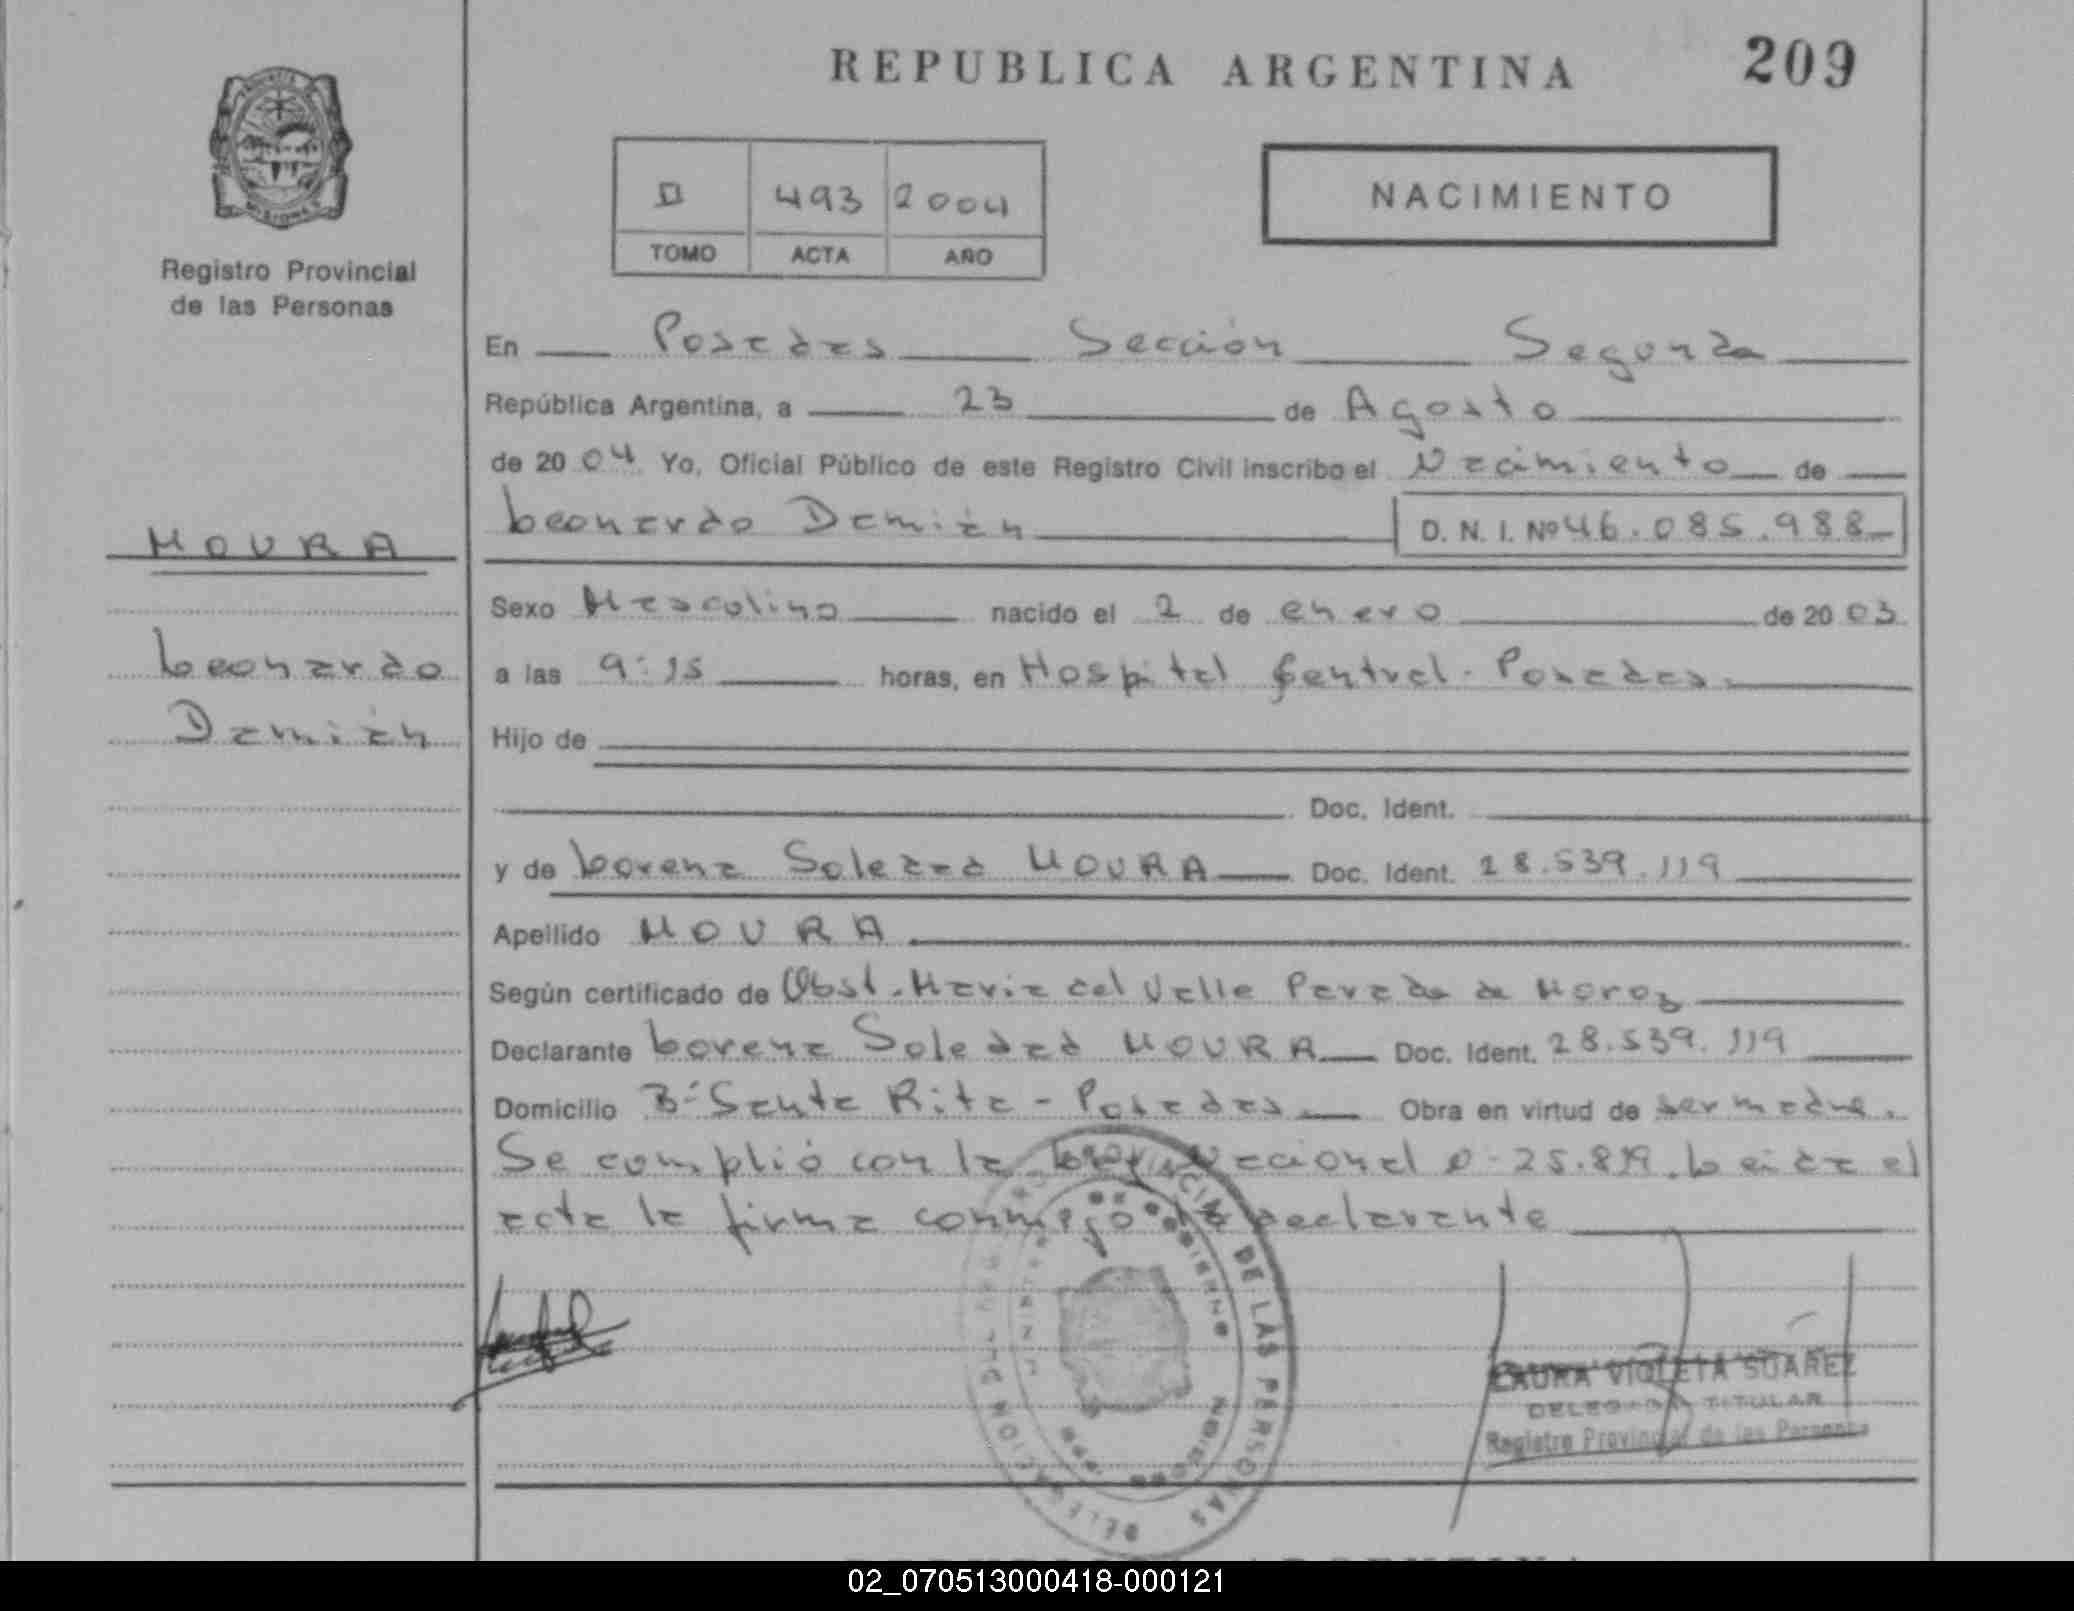 REPUBLICA ARGENTINA 209
MISIONES
Registro Provincial
de las Personas
II 493 2004
TOMO ACTA AÑO
NACIMIENTO
En Posadas Sección Segunda
República Argentina, a 23 de Agosto
de 2004 Yo, Oficial Público de este Registro Civil inscribo el Nacimiento de
Leonardo Damián D. N. I. Nº 46.085.988
MOURA
Leonardo
Damián
Sexo Masculino nacido el 2 de enero de 2003
a las 9:15 horas, en Hospital Central - Posadas.
Hijo de
Doc. Ident.
y de Lorena Soledad MOURA Doc. Ident. 28.539.119
Apellido MOURA
Según certificado de Obst. María del Valle Parada de Moroz
Declarante Lorena Soledad MOURA Doc. Ident. 28.539.119
Domicilio Bº Santa Rita - Posadas. Obra en virtud de ser madre.
Se cumplió con la Ley Nacional 25.819. Leída el
acta la firma conmigo la declarante
DELEGACION PROVINCIAL DE LAS PERSONAS
LAURA VIOLETA SUAREZ
DELEGADA TITULAR
Registro Provincial de las Personas
02_070513000418-000121